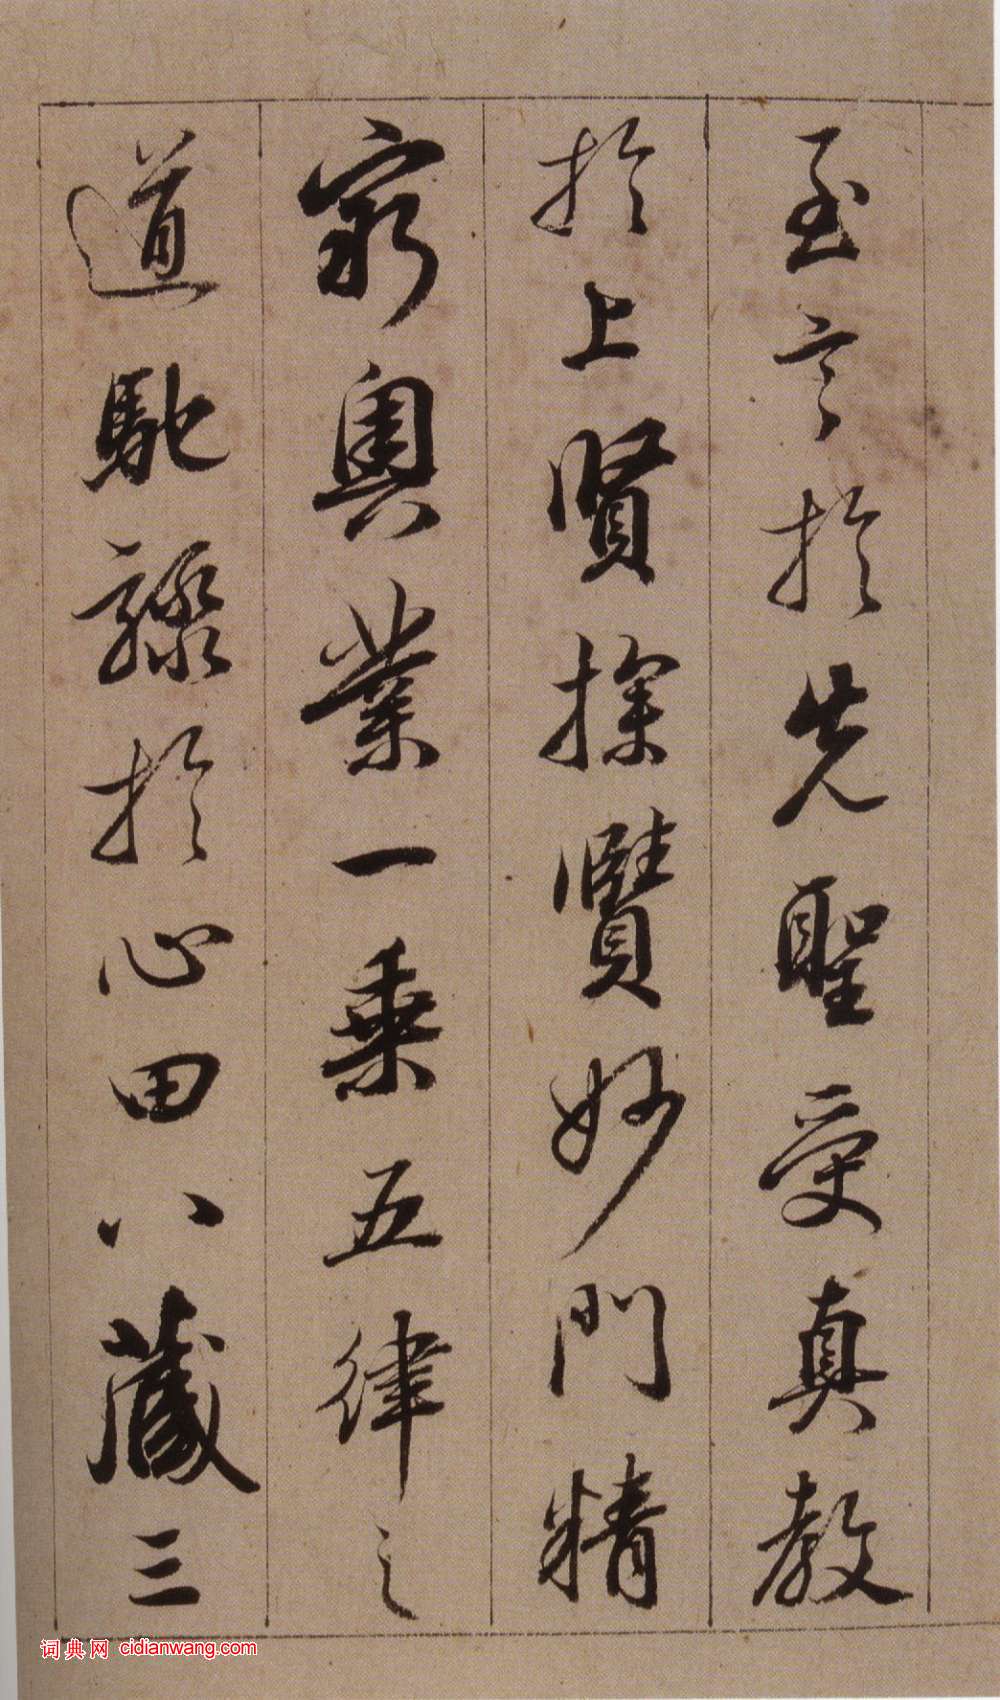 至言於先聖受真教
於上賢探賾妙門精
窮奥業一乗五律之
道馳驟於心田八藏三
词典网 cidianwang.com